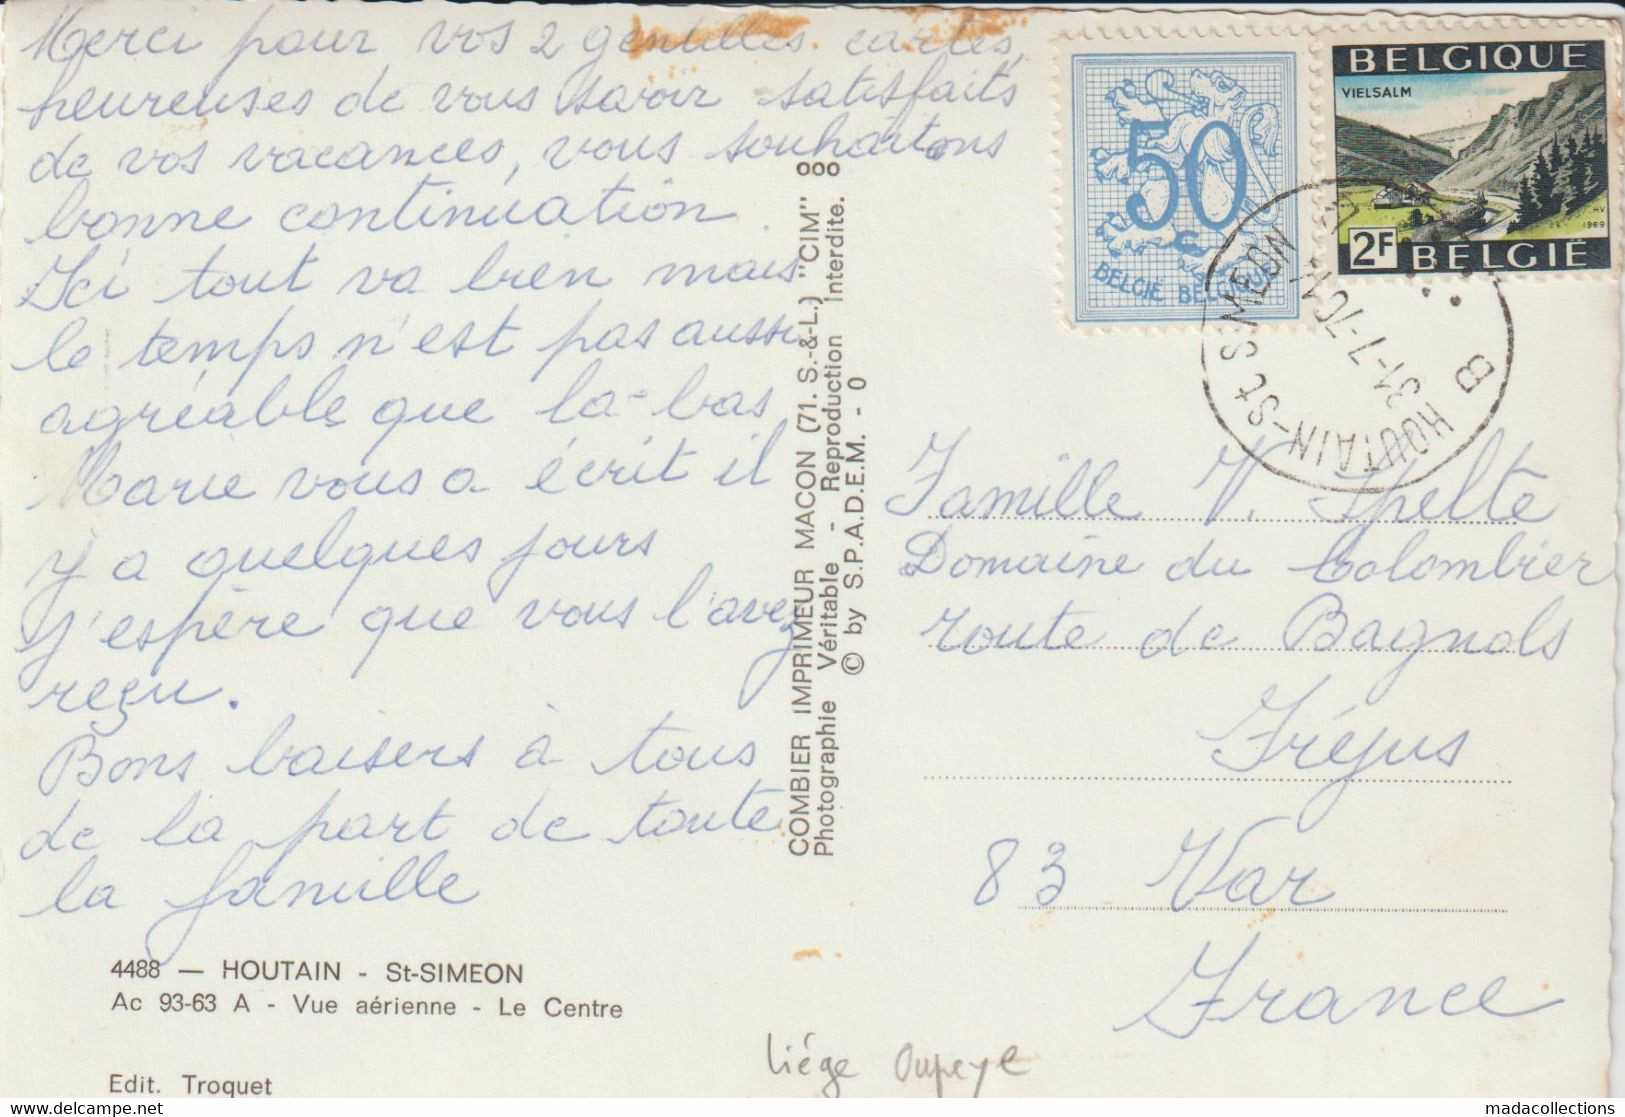 Merci pour vos 2 gentilles cartes,
heureuses de vous savoir satisfaits
de vos vacances, vous souhaitons
bonne continuation
Ici tout va bien mais
le temps n'est pas aussi
agréable que la-bas
Marie vous a écrit il
y a quelques jours
j'espère que vous l'avez
reçu.
Bons baisers à tous
de la part de toute
la famille
4488 — HOUTAIN - St-SIMEON
Ac 93-63 A - Vue aérienne - Le Centre
Edit. Troquet
COMBIER IMPRIMEUR MACON (71. S.-&-L.) "CIM"
Photographie Véritable - Reproduction Interdite.
© by S.P.A.D.E.M. - 0
50
c
BELGIË BELGIQUE
BELGIQUE
VIELSALM
HV
1969
2F
BELGIË
B HOUTAIN-St SIMEON
31-7-70
Famille V. Spelte
Domaine du Colombier
route de Bagnols
Fréjus
83 Var
France
Liége Oupeye
madacollections